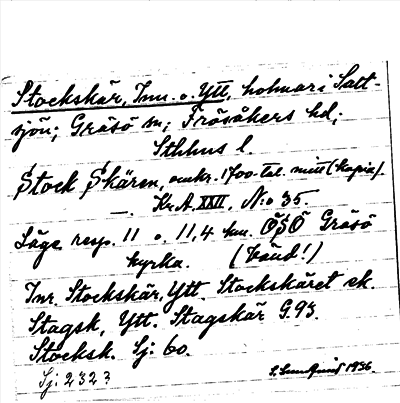 Stockskär, Inn. o. Ytt, holmar i Salt-
sjön; Gräsö sn; Frösåkers hd;
Sthlms l.
Stock Skären, omkr. 1700-tal. mitt (kopia).
—. Kr. A. XXII, N:o 35.
Läge resp. 11 o. 11,4 km. ÖSÖ Gräsö
kyrka. (Vänd!)
Inr. Stockskär, Ytt. Stockskäret ek.
Stagsk, Ytt. Stagskär G. 93.
Stocksk. Sj: 60.
Sj: 2323
1936.